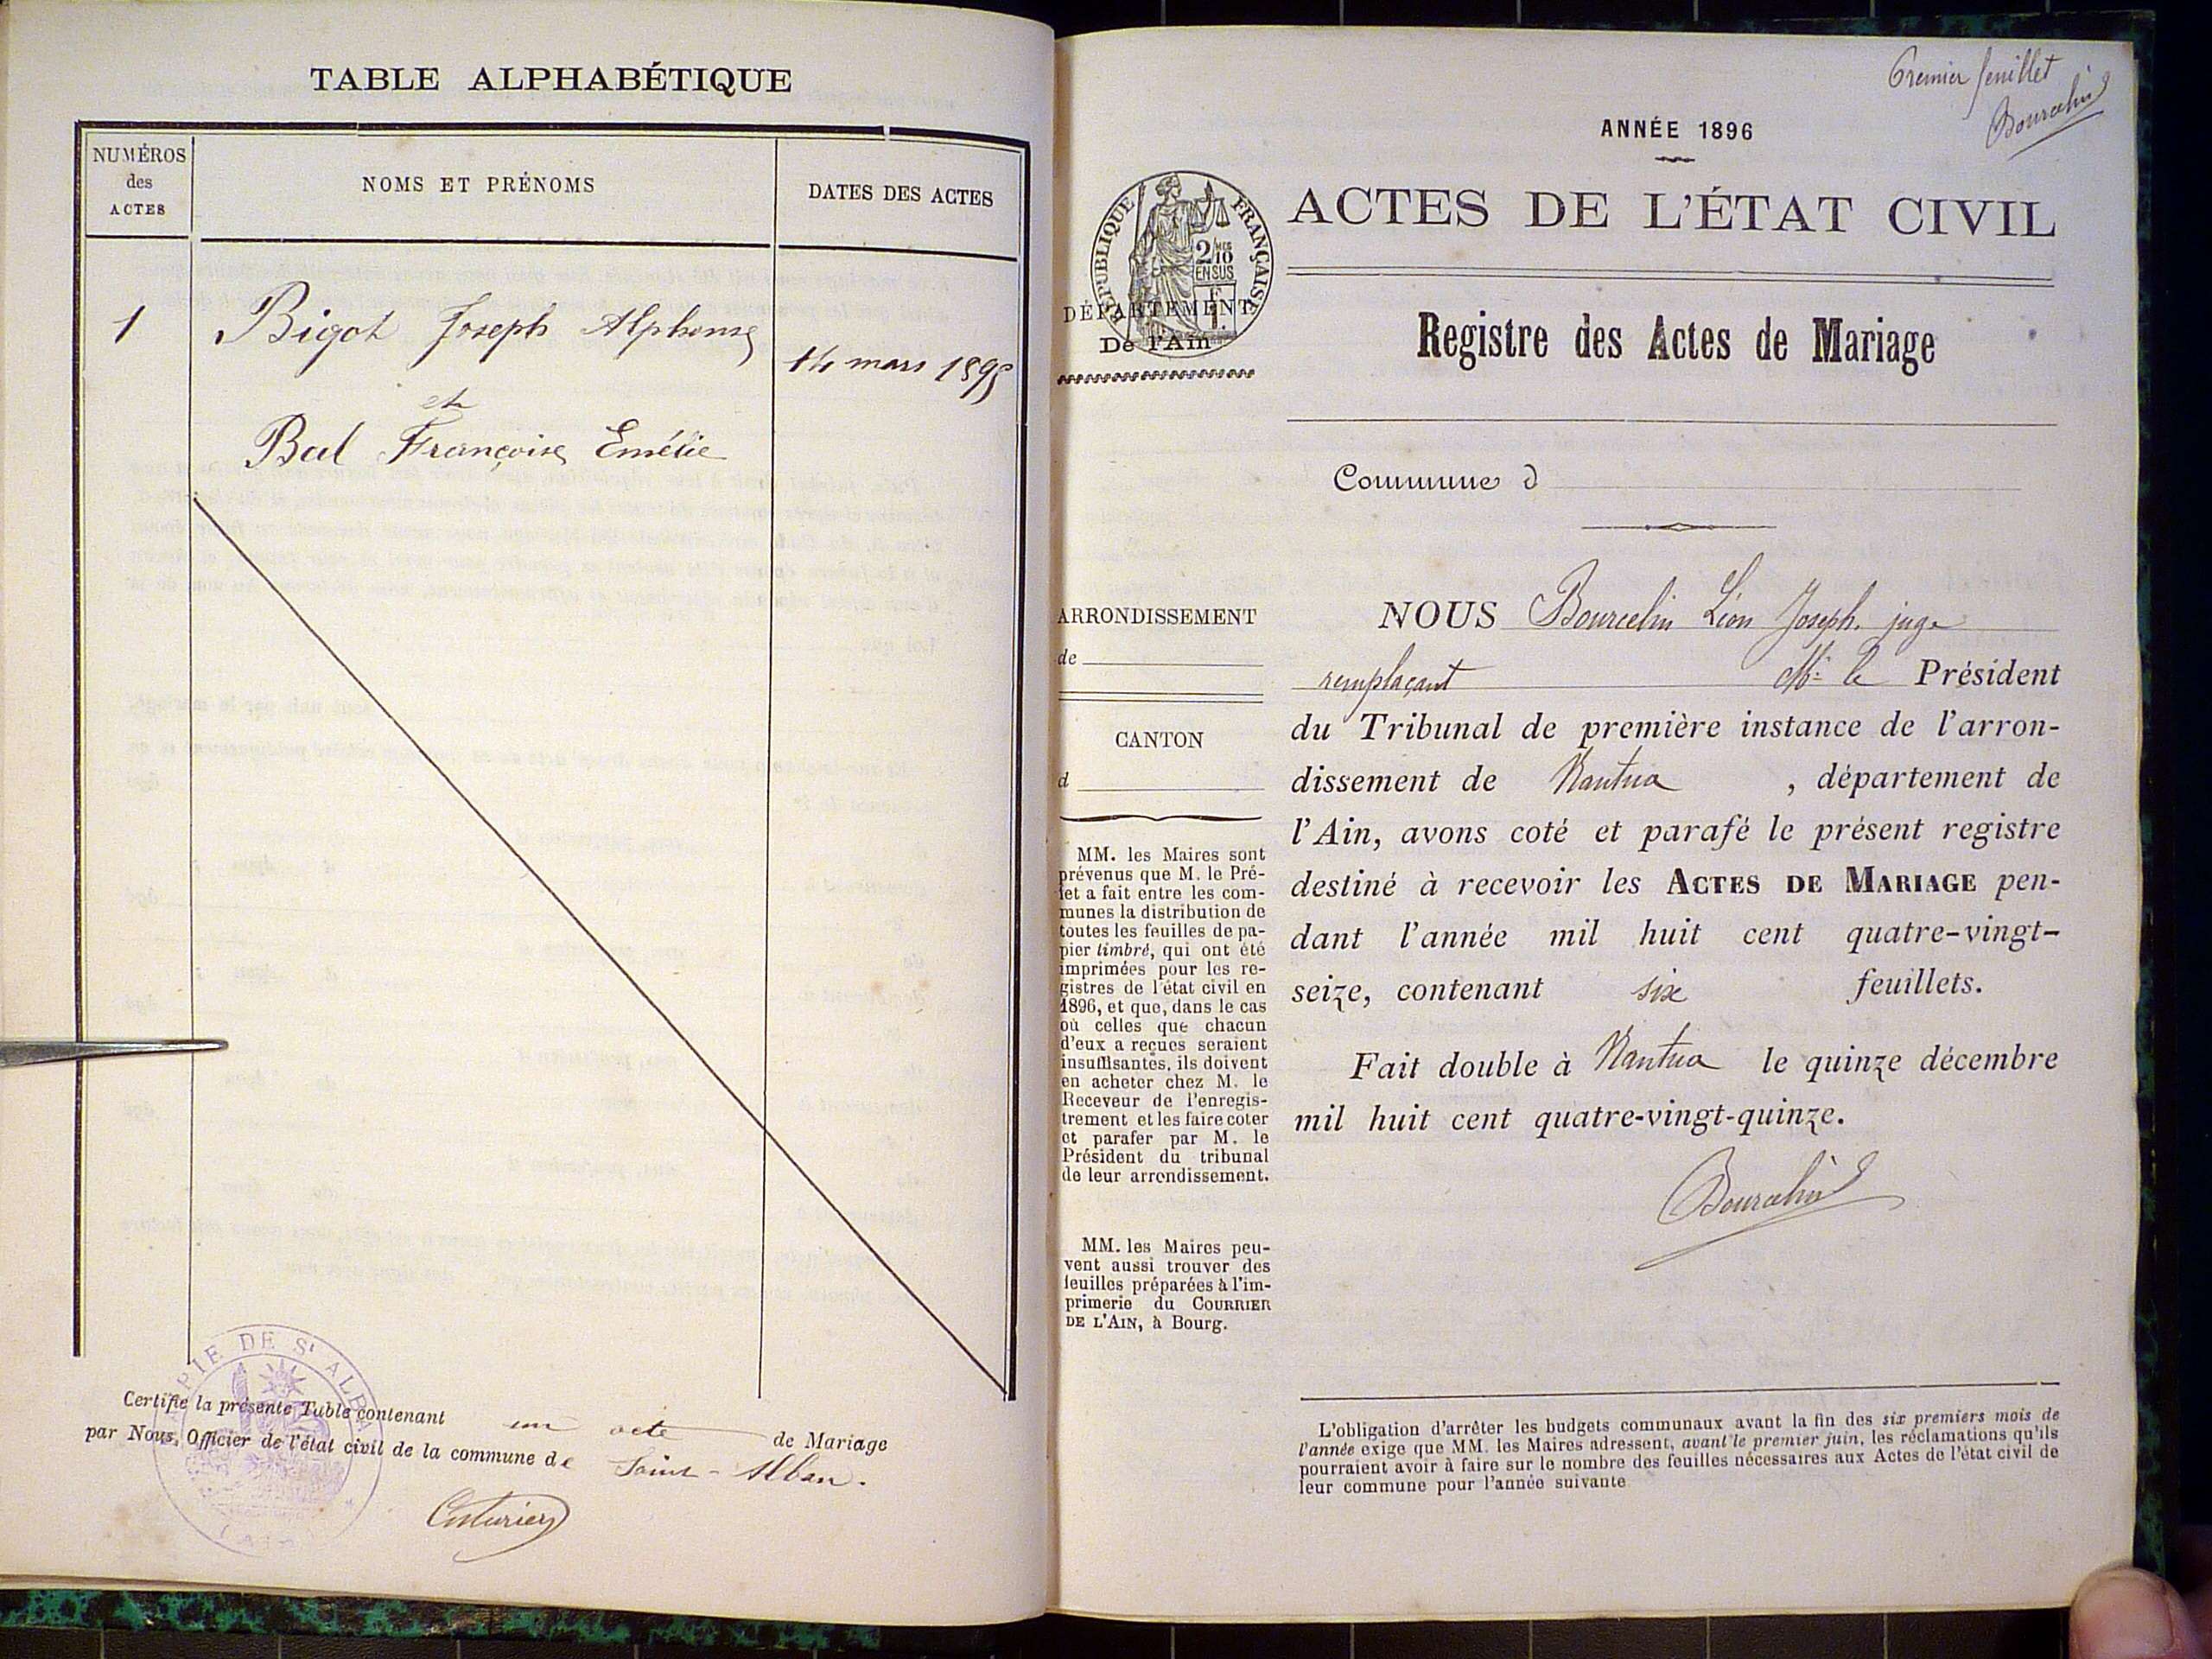 TABLE ALPHABÉTIQUE
NUMÉROS
des
ACTES
NOMS ET PRÉNOMS
DATES DES ACTES
1
Bigot Joseph Alphonse
14 mars 1895
et
Bal Françoise Emélie
MAIRIE DE St ALBAN
Certifié la présente Table contenant un acte de Mariage
par Nous, Officier de l'état civil de la commune de Saint-Alban.
Couturier
Premier feuillet
Bourcelin
ANNÉE 1896
RÉPUBLIQUE FRANÇAISE
2/10 MES
EN SUS
ACTES DE L'ÉTAT CIVIL
DÉPARTEMENT
De l'Ain
Registre des Actes de Mariage
Commune d
ARRONDISSEMENT
de
CANTON
d
MM. les Maires sont
prévenus que M. le Pré-
fet a fait entre les com-
munes la distribution de
toutes les feuilles de pa-
pier timbré, qui ont été
imprimées pour les re-
gistres de l'état civil en
1896, et que, dans le cas
où celles que chacun
d'eux a reçues seraient
insuffisantes, ils doivent
en acheter chez M. le
Receveur de l'enregis-
trement et les faire coter
et parafer par M. le
Président du tribunal
de leur arrondissement.
MM. les Maires peu-
vent aussi trouver des
feuilles préparées à l'im-
primerie du COURRIER
DE L'AIN, à Bourg.
NOUS Bourcelin Léon Joseph, juge
remplaçant Mr le Président
du Tribunal de première instance de l'arron-
dissement de Nantua , département de
l'Ain, avons coté et parafé le présent registre
destiné à recevoir les ACTES DE MARIAGE pen-
dant l'année mil huit cent quatre-vingt-
seize, contenant six feuillets.
Fait double à Nantua le quinze décembre
mil huit cent quatre-vingt-quinze.
Bourcelin
L'obligation d'arrêter les budgets communaux avant la fin des six premiers mois de
l'année exige que MM. les Maires adressent, avant le premier juin, les réclamations qu'ils
pourraient avoir à faire sur le nombre des feuilles nécessaires aux Actes de l'état civil de
leur commune pour l'année suivante